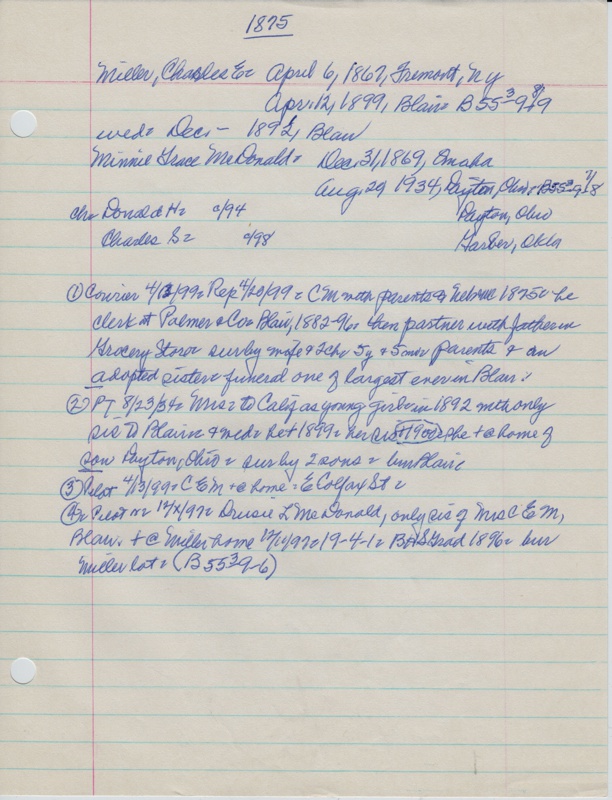 1875
Miller, Charles E = April 6, 1867, Fremont, Ny
Apr. 12, 1899, Blair = B 55-3-9-9
wed = Dec. - 1892, Blair
Minnie Grace McDonald = Dec. 31, 1869, Omaha
Aug. 29, 1934, Dayton, Ohio = B 55-3-9-8
ch = Donald H = c/94 Dayton, Ohio
Charles S = c/98 Garber, Okla
① Courier 4/13/99 = Rep 4/20/99 = C M with parents to Nebr 1875 = he
clerk at Palmer & Co = Blair, 1882-96 = then partner with father in
Grocery Store = sur by wife & 2 ch = 5 y & 5 mo = parents & an
adopted sister = funeral one of largest ever in Blair =
② PT 8/23/34 = Mrs = to Calif as young girl = in 1892 with only
sis to Blair = & wed = he + 1899 = her sis + 1900 she + @ home of
son Dayton, Ohio = sur by 2 sons = bur Blair
③ Pilot 4/13/99 = C E M + @ home = E Colfax St =
④ Pilot = 12/ /97 = Drusie L McDonald, only sis of Mrs C E M,
Blair. + @ Miller home 12/ /97 = 19-4-1 = BHS Grad 1896 = bur
Miller lot = (B 55-3-9-6)